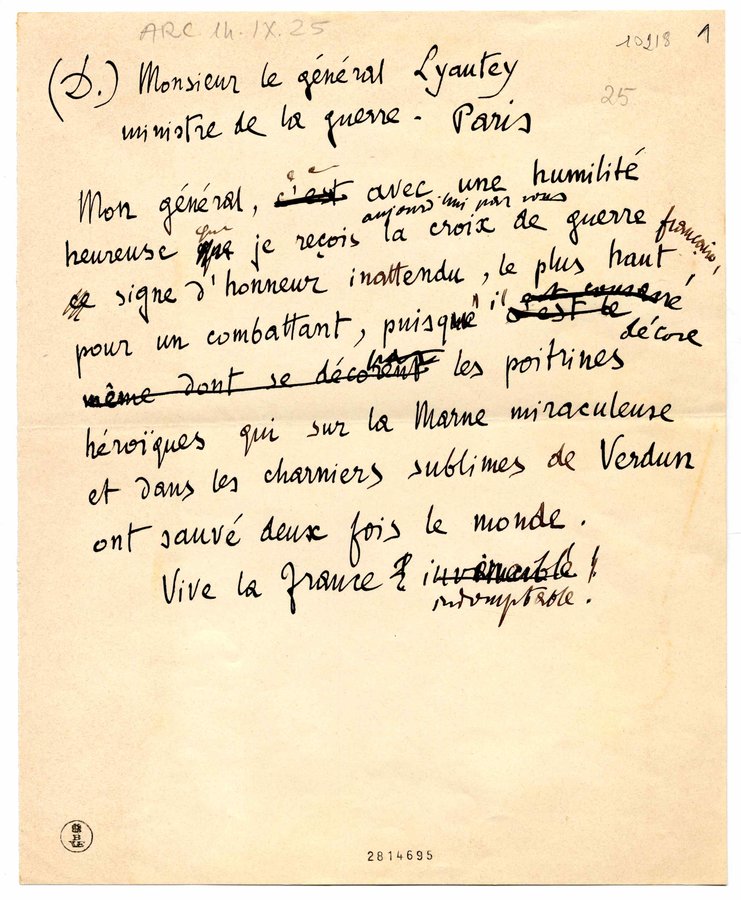 ARC 14.IX.25
10218 1
25
(D.) Monsieur le général Lyautey
ministre de la guerre - Paris
Mon général, c'est avec une humilité
aujourd'hui par vous
heureuse que je reçois la croix de guerre française,
ce signe d'honneur inattendu, le plus haut
pour un combattant, puisqu'il c'est le
décore
même dont se décorent les poitrines
héroïques qui sur la Marne miraculeuse
et dans les charniers sublimes de Verdun
ont sauvé deux fois le monde.
Vive la France invincible !
indomptable.
2814695